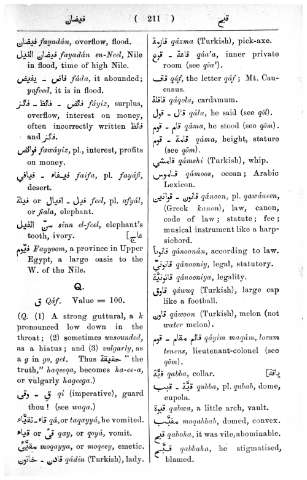 فيضان ( 211 ) قبح
فيضان fayadán, overflow, flood.
فيضان النيل fayadán en-Neel, Nile
in flood, time of high Nile.
فاض - يفيض fáda, it abounded;
yafeed, it is in flood.
فائظ - فائز fáyiz, surplus,
overflow, interest on money,
often incorrectly written فائظ
and فائز.
فوائض fawáyiz, pl., interest, profits
on money.
فيفاء - فيافي faifa, pl. fayáfi,
desert.
فيلة or فيل - افيال feel, pl. afyál,
or fiala, elephant.
سن الفيل sinn el-feel, elephant's
tooth, ivory. [عاج
فيوم Fayyoom, a province in Upper
Egypt, a large oasis to the
W. of the Nile.
Q.
ق Qáf. Value = 100.
(Q. (1) A strong guttural, a k
pronounced low down in the
throat; (2) sometimes unsounded,
as a hiatus; and (3) vulgarly, as
a g in go, get. Thus حقيقة " the
truth," haqeeqa, becomes ha-ee-a,
or vulgarly hageega.)
ق - وقى qi (imperative), guard
thou! (see waqa.)
قاء - تقيأ qá, or taqayyá, he vomited.
قيأ or قي qay, or qoyá, vomit.
مقيئ moqayya, or moqeey, emetic.
قادن - خاتون qádin (Turkish), lady.
قازمة qázma (Turkish), pick-axe.
قاعة - قوع qá'a, inner private
room (see qáa').
قاف qáf, the letter qáf; Mt. Cau-
casus.
قاقلة qáqola, cardamum.
قال - قول qála, he said (see qól).
قام - قوم qáma, he stood (see qóm).
قامة - قوم qáma, height, stature
(see qóm).
قامشي qámshi (Turkish), whip.
قاموس qámoos, ocean; Arabic
Lexicon.
قانون - قوانين qánoon, pl. qawáneen,
(Greek kanon), law, canon,
code of law; statute; fee;
musical instrument like a harp-
sichord.
قانوناً qánoonán, according to law.
قانوني qánooniy, legal, statutory.
قانونية qánooniya, legality.
قاوق qáwuq (Turkish), large cap
like a football.
قاوون qáwoon (Turkish), melon (not
water melon).
قائم مقام - قوم qáyim maqám, locum
tenens, lieutenant-colonel (see
qóm).
قبة qabba, collar.
قبة - قبب qubba, pl. qubab, dome,
cupola.
قبوة qabwa, a little arch, vault.
مقبب moqabbab, domed, convex.
قبح qaboha, it was vile, abominable.
قبح qabbaha, he stigmatised,
blamed.